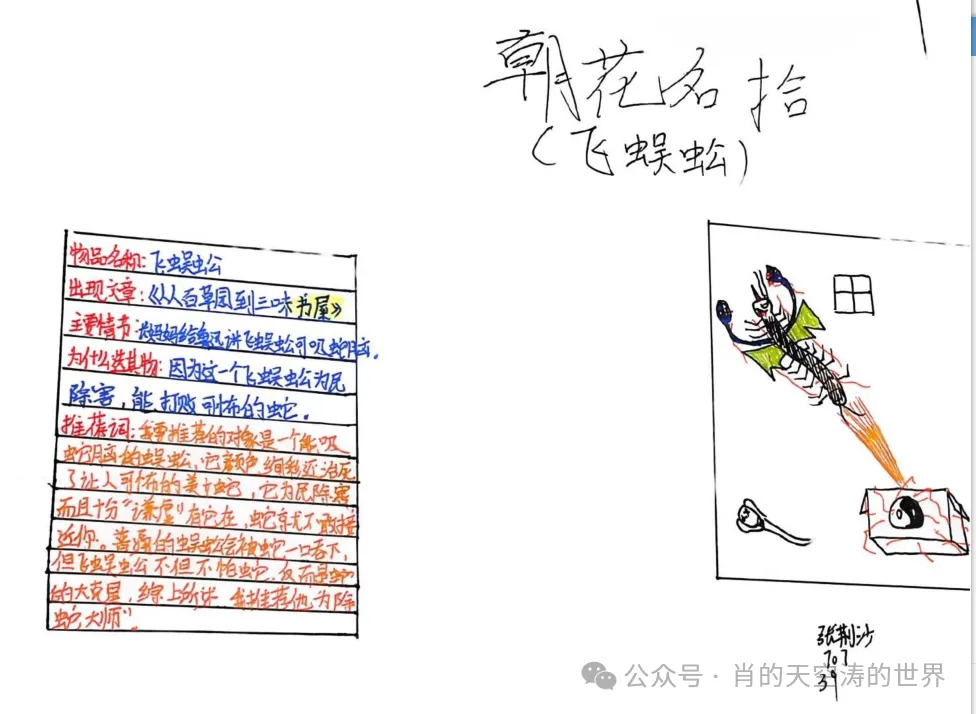 朝花名拾
(飞蜈蚣)
物品名称:飞蜈蚣
出现文章:《从百草园到三味书屋》
主要情节:长妈妈给鲁迅讲飞蜈蚣可吸蛇脑。
为什么选其物:因为这一个飞蜈蚣为民
除害,能打败可怖的蛇。
推荐词:我要推荐的对象是一个能吸
蛇脑的蜈蚣,它颜色绚彩还治死
了让人可怖的美女蛇,它为民除害
而且十分“谦虚”有它在,蛇就不敢接
近你。普通的蜈蚣会被蛇一口吞下,
但飞蜈蚣不但不怕蛇,反而是蛇
的大克星,综上所述,我推荐他为除
蛇大师”。
张荆沙
707
39
公众号·肖的天空涛的世界